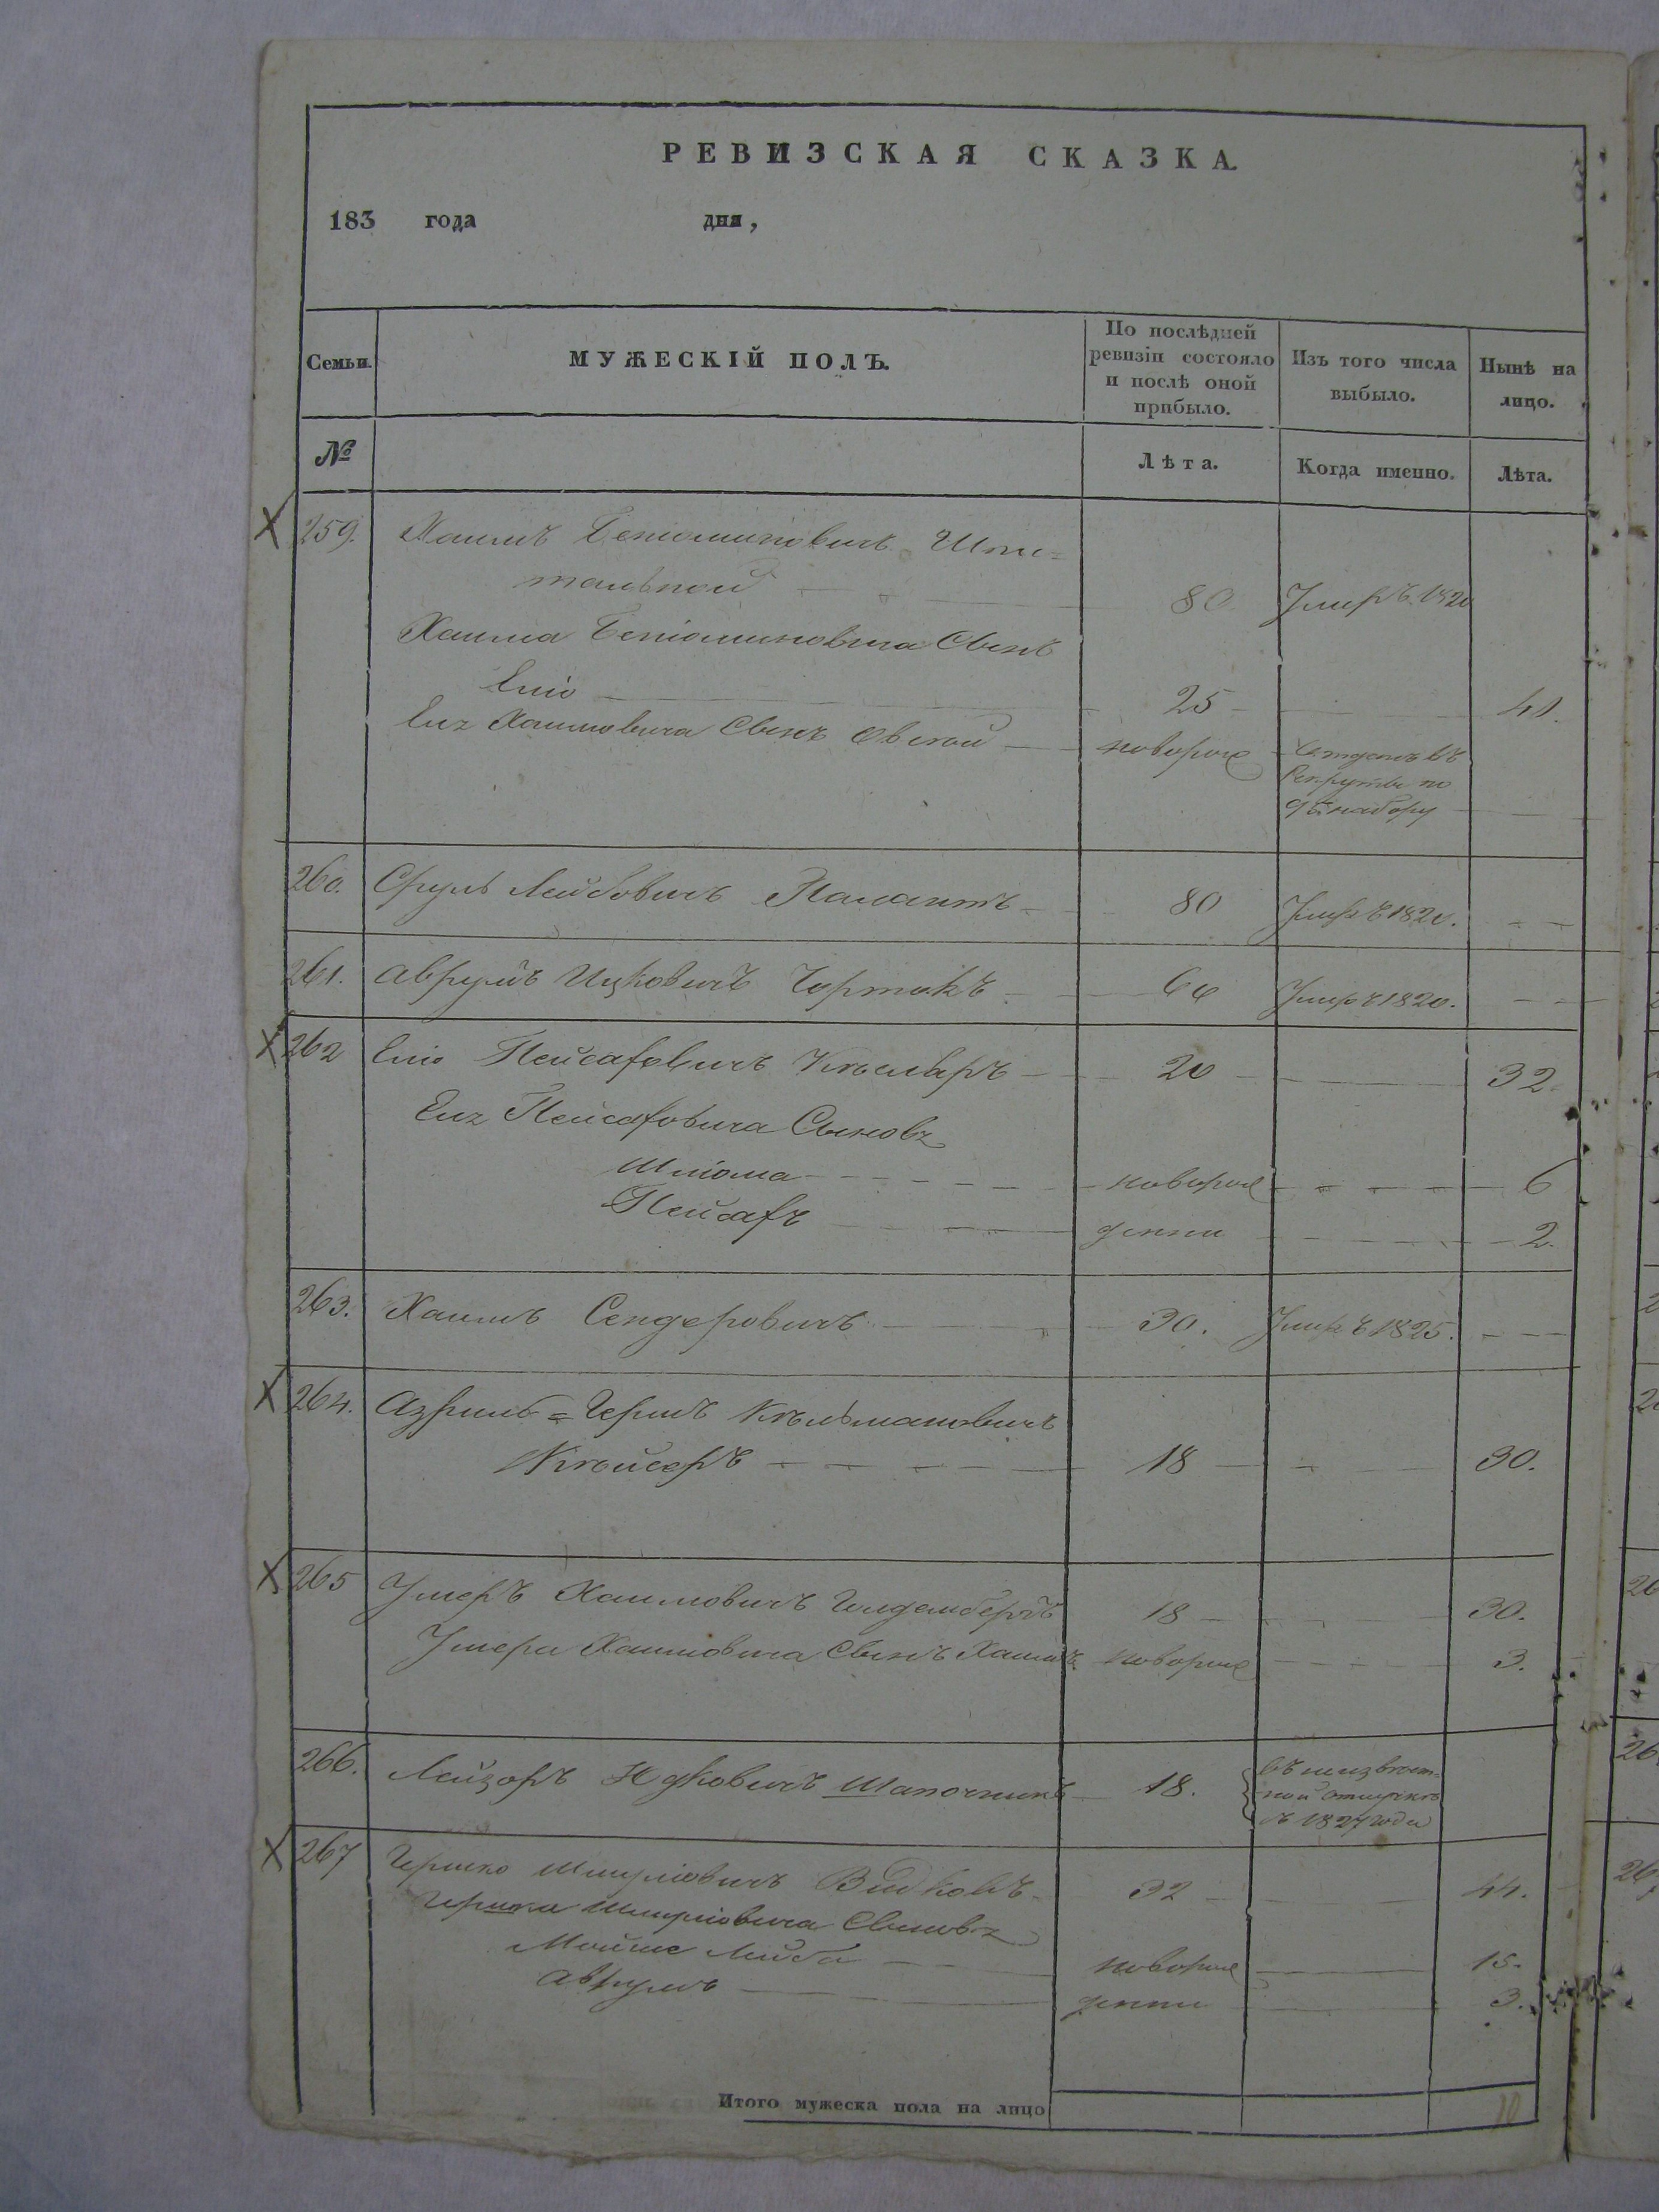 РЕВИЗСКАЯ СКАЗКА.
183 года дня,
Семьи. МУЖЕСКІЙ ПОЛЪ. По послѣдней ревизіи состояло и послѣ оной прибыло. Изъ того числа выбыло. Нынѣ на лицо.
№ Лѣта. Когда именно. Лѣта.
X 259. Хаимъ Беніоминовичъ Шпи=
тальной 80 Умеръ 1820
Хаима Беніоминовича Сынъ
Еліо 25 41.
Хаимовича Сынъ новорож Отданъ въ
Рекруты по
набору
260. Сруль Лейбовичъ 80 Умеръ 1820.
261. Аврумъ Ицковичъ Чортокъ Умеръ 1820.
X 262 Еліо Пейсаховичъ 20 32.
Пейсаховича Сыновя
Шліома новорож 6
Пейсахъ денни 2.
263. Хаимъ Сендеровичъ 30. Умеръ 1825.
X 264. Азриль=Гершъ Кельмановичъ
18 30.
X 265 Умеръ Хаимовичъ Голдембергъ 18 30.
Умера Хаимовича Сынъ Хаимъ новорож 3.
266. Лейзоръ Юдковичъ Шапочникъ 18. въ неизвѣст=
ной отлучкѣ
съ 1827 года
X 267 Гершко Шмуліовичъ 32 44.
Гершка Шмуліовича Сыновя
Мойше Лейба новорож 15.
Аврумъ денни 3.
Итого мужеска пола на лицо 10